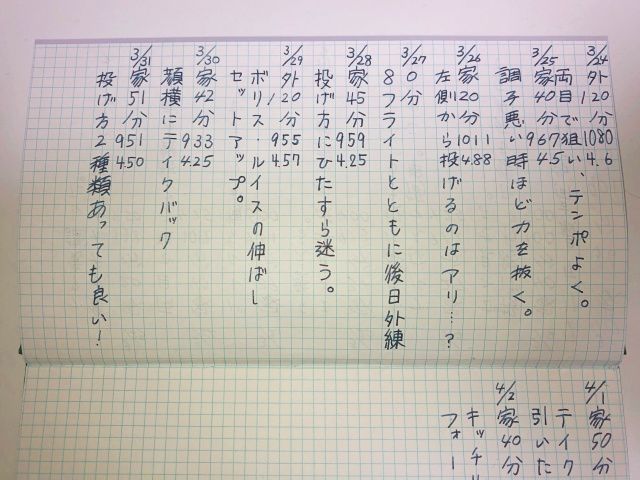 3/24 外120分 1080 4.6
両目で狙い、テンポよく。
3/25 家40分 967 4.5
調子悪い時ほど力を抜く。
3/26 家20分 1011 4.88
左側から投げるのはアリ…?
3/27 0分
8フライトとともに後日外練
3/28 家45分 959 4.25
投げ方にひたすら迷う。
3/29 外120分 955 4.57
ボリス・ルイスの伸ばし
セットアップ。
3/30 家42分 933 4.25
顔横にテイクバック
3/31 家51分 951 4.50
投げ方2種類あっても良い!
4/1 家50分
テイク
引いた
4/2 家40分
キッチリ
フォー